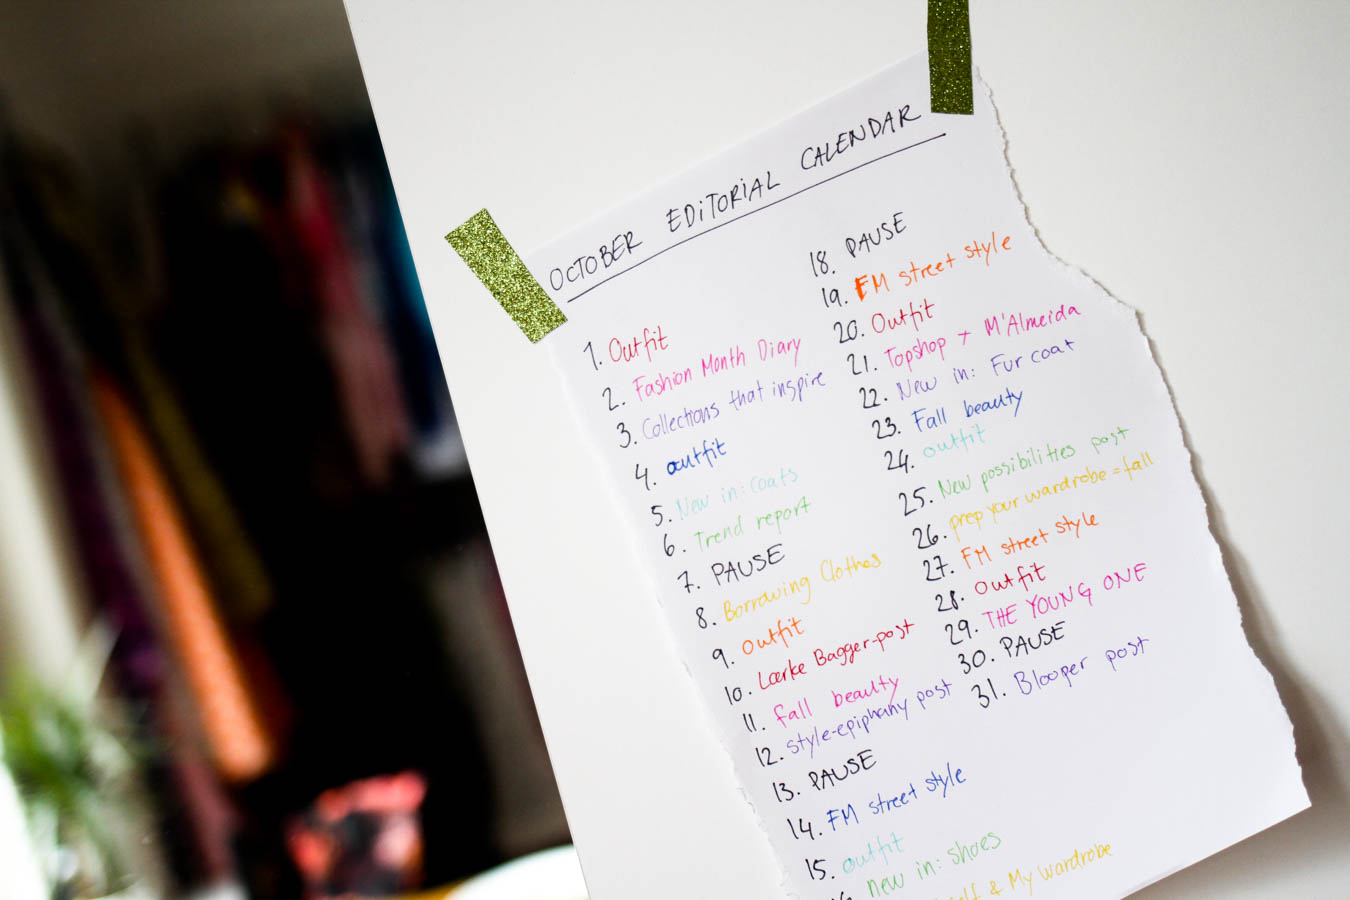 OCTOBER EDITORIAL CALENDAR
1. Outfit
2. Fashion Month Diary
3. Collections that inspire
4. outfit
5. New in: coats
6. Trend report
7. PAUSE
8. Borrowing Clothes
9. Outfit
10. Lærke Bagger-post
11. fall beauty
12. style-epiphany post
13. PAUSE
14. FM street style
15. outfit
new in: shoes
& My wardrobe
18. PAUSE
19. FM street style
20. Outfit
21. Topshop + M'Almeida
22. New in: Fur coat
23. Fall beauty
24. outfit
25. New possibilities post
26. prep your wardrobe = fall
27. FM street style
28. Outfit
29. THE YOUNG ONE
30. PAUSE
31. Blooper post